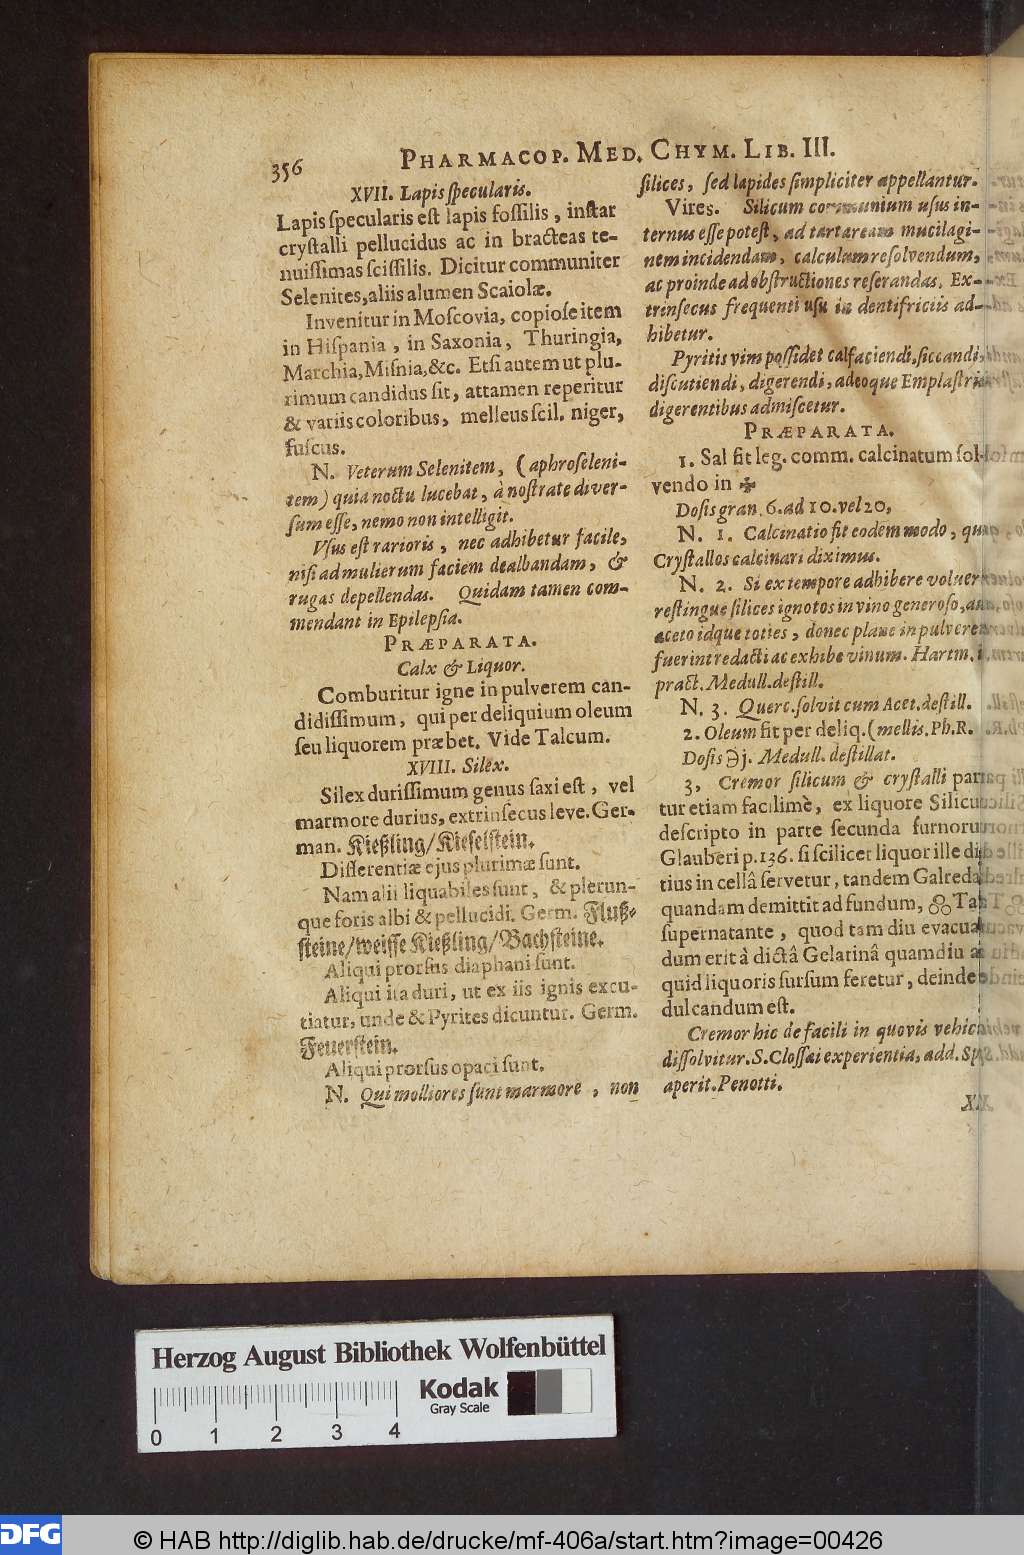 356 PHARMACOP. MED. CHYM. LIB. III.
XVII. Lapis ſpecularis.
Lapis ſpecularis eſt lapis foſſilis, inſtar
cryſtalli pellucidus ac in bracteas te-
nuiſſimas ſciſſilis. Dicitur communiter
Selenites, aliis alumen Scaiolæ.
Invenitur in Moſcovia, copioſe item
in Hiſpania, in Saxonia, Thuringia,
Marchia, Miſnia, &c. Etſi autem ut plu-
rimum candidus ſit, attamen reperitur
& variis coloribus, melleus ſcil. niger,
fuſcus.
N. Veterum Selenitem, (aphroſeleni-
tem) quia noctu lucebat, à noſtrate diver-
ſum eſſe, nemo non intelligit.
Vſus eſt rarioris, nec adhibetur facile,
niſi ad mulierum faciem dealbandam, &
rugas depellendas. Quidam tamen com-
mendant in Epilepſia.
PRÆPARATA.
Calx & Liquor.
Comburitur igne in pulverem can-
didiſſimum, qui per deliquium oleum
ſeu liquorem præbet. Vide Talcum.
XVIII. Silex.
Silex duriſſimum genus ſaxi eſt, vel
marmore durius, extrinſecus leve. Ger-
man. Kießling/Kieſelſtein.
Differentiæ ejus plurimæ ſunt.
Nam alii liquabiles ſunt, & plerun-
que foris albi & pellucidi. Germ. Fluß-
ſteine/weiſſe Kießling/Bachſteine.
Aliqui prorſus diaphani ſunt.
Aliqui ita duri, ut ex iis ignis excu-
tiatur, unde & Pyrites dicuntur. Germ.
Feuerſtein.
Aliqui prorſus opaci ſunt.
N. Qui molliores ſunt marmore, non
ſilices, ſed lapides ſimpliciter appellantur.
Vires. Silicum communium uſus in-
ternus eſſe poteſt, ad tartaream mucilagi-
nem incidendam, calculum reſolvendum,
ac proinde ad obſtructiones reſerandas. Ex-
trinſecus frequenti uſu in dentifriciis ad-
hibetur.
Pyritis vim poſſidet calfaciendi, ſiccandi,
diſcutiendi, digerendi, adeoque Emplaſtris
digerentibus admiſcetur.
PRÆPARATA.
1. Sal fit leg. comm. calcinatum ſol-
vendo in ✠
Doſis gran. 6. ad 10. vel 20,
N. 1. Calcinatio fit eodem modo, quo
Cryſtallos calcinari diximus.
N. 2. Si ex tempore adhibere volueris
reſtingue ſilices ignotos in vino generoſo,
aceto idque toties, donec plane in pulverem
fuerint redacti ac exhibe vinum. Hartm. i.
pract. Medull. deſtill.
N. 3. Querc. ſolvit cum Acet. deſtill.
2. Oleum fit per deliq. (mellis. Ph. R.
Doſis ℈j. Medull. deſtillat.
3, Cremor ſilicum & cryſtalli para
tur etiam facilimè, ex liquore Silicum
deſcripto in parte ſecunda furnorum
Glauberi p. 136. ſi ſcilicet liquor ille diu
tius in cellâ ſervetur, tandem Galredam
quandam demittit ad fundum,
ſupernatante, quod tam diu evacuan
dum erit à dictâ Gelatinâ quamdiu
quid liquoris ſurſum feretur, deinde
dulcandum eſt.
Cremor hic de facili in quovis vehiculo
diſſolvitur. S. Cloſſai experientia, add. Sp.
aperit. Penotti.
Herzog August Bibliothek Wolfenbüttel
Kodak
Gray Scale
0 1 2 3 4
DFG © HAB http://diglib.hab.de/drucke/mf-406a/start.htm?image=00426